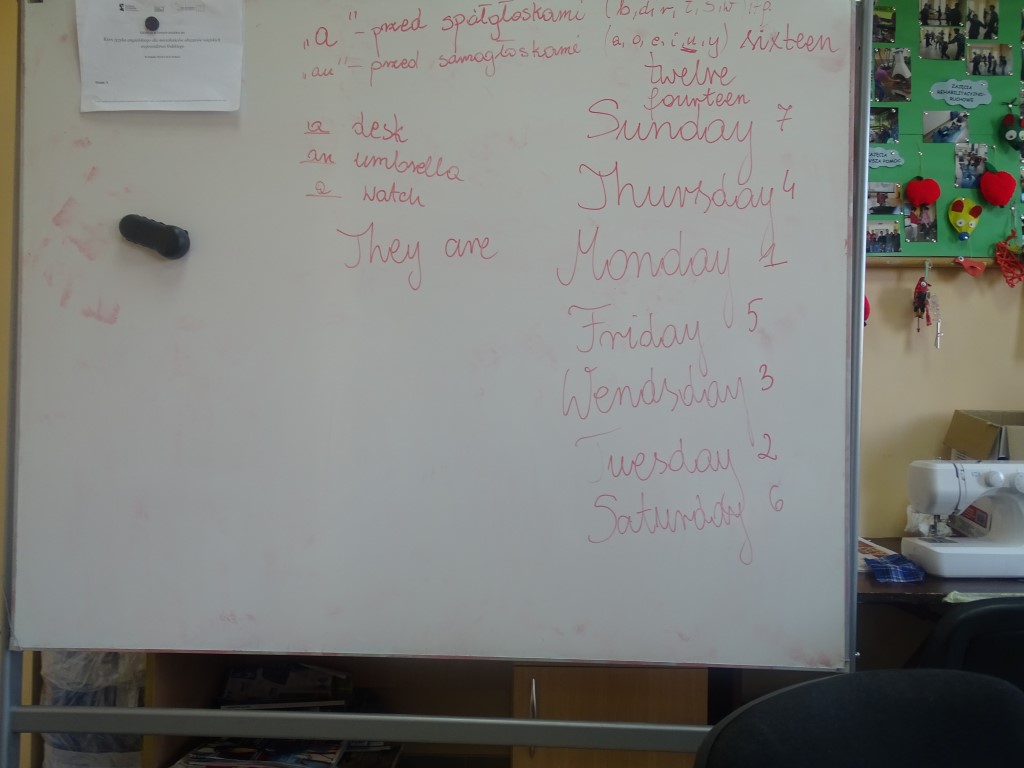 „a" - przed spółgłoskami (b, d, r, t, s, w)
„an" - przed samogłoskami (a, o, e, i, u, y) sixteen
twelve
fourteen
a desk
an umbrella
a watch
They are
Sunday 7
Thursday 4
Monday 1
Friday 5
Wendsday 3
Tuesday 2
Saturday 6
ZAJĘCIA
REHABILITACYJNO-
RUCHOWE